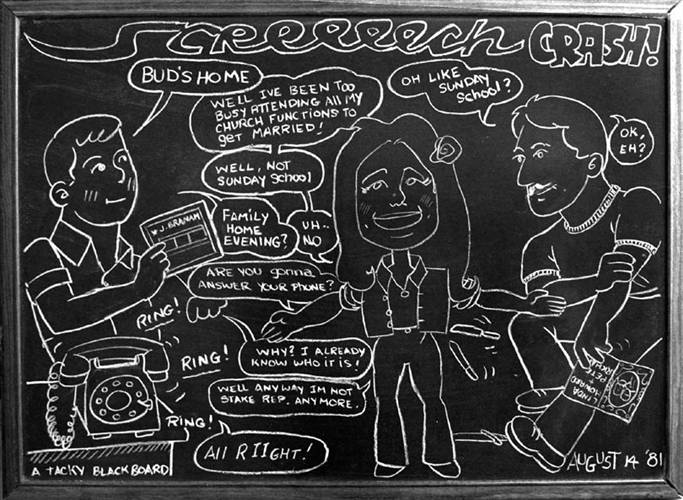 Screeeeech
CRASH!
BUD'S HOME
WELL I'VE BEEN TOO
BUSY ATTENDING All MY
CHURCH FUNCTIONS TO
get MARRIED!
OH LIKE
SUNDAY
School?
OK,
EH?
WELL, NOT
SUNDAY School
J. BRANAM
FAMILY
HOME
EVENING?
UH..
NO
ARE YOU gonna
ANSWER YOUR PHONE?
RING!
RING!
WHY? I AlREADY
KNOW WHO IT IS!
WELL ANYWAY IM NOT
STAKE REP. ANYMORE.
RING!
All RIIGHT.!
A TACKY BLACKBOARD
AUGUST 14 '81